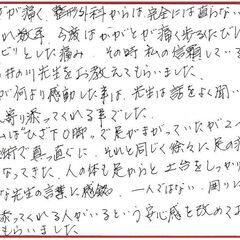 が痛く、整形外科からは完全には直らない
れ数年、今度はかがとが痛く歩くたびにし
ビリとした痛み、その時私の信頼している
井の川先生をお教えてもらいました。
が何より感動した事は、先生は話をよく聞い
寄り添ってくれる事でした。
はひざ下O脚で足がまがっていたが2ヶ
術で真っ直ぐに、それと同じく徐々に足の
なってきた、人の体も足から土台をしっかり
な先生の言葉に感銘 一人ではない、周り
添ってくれる人がいるという安心感を改めて
もらいました